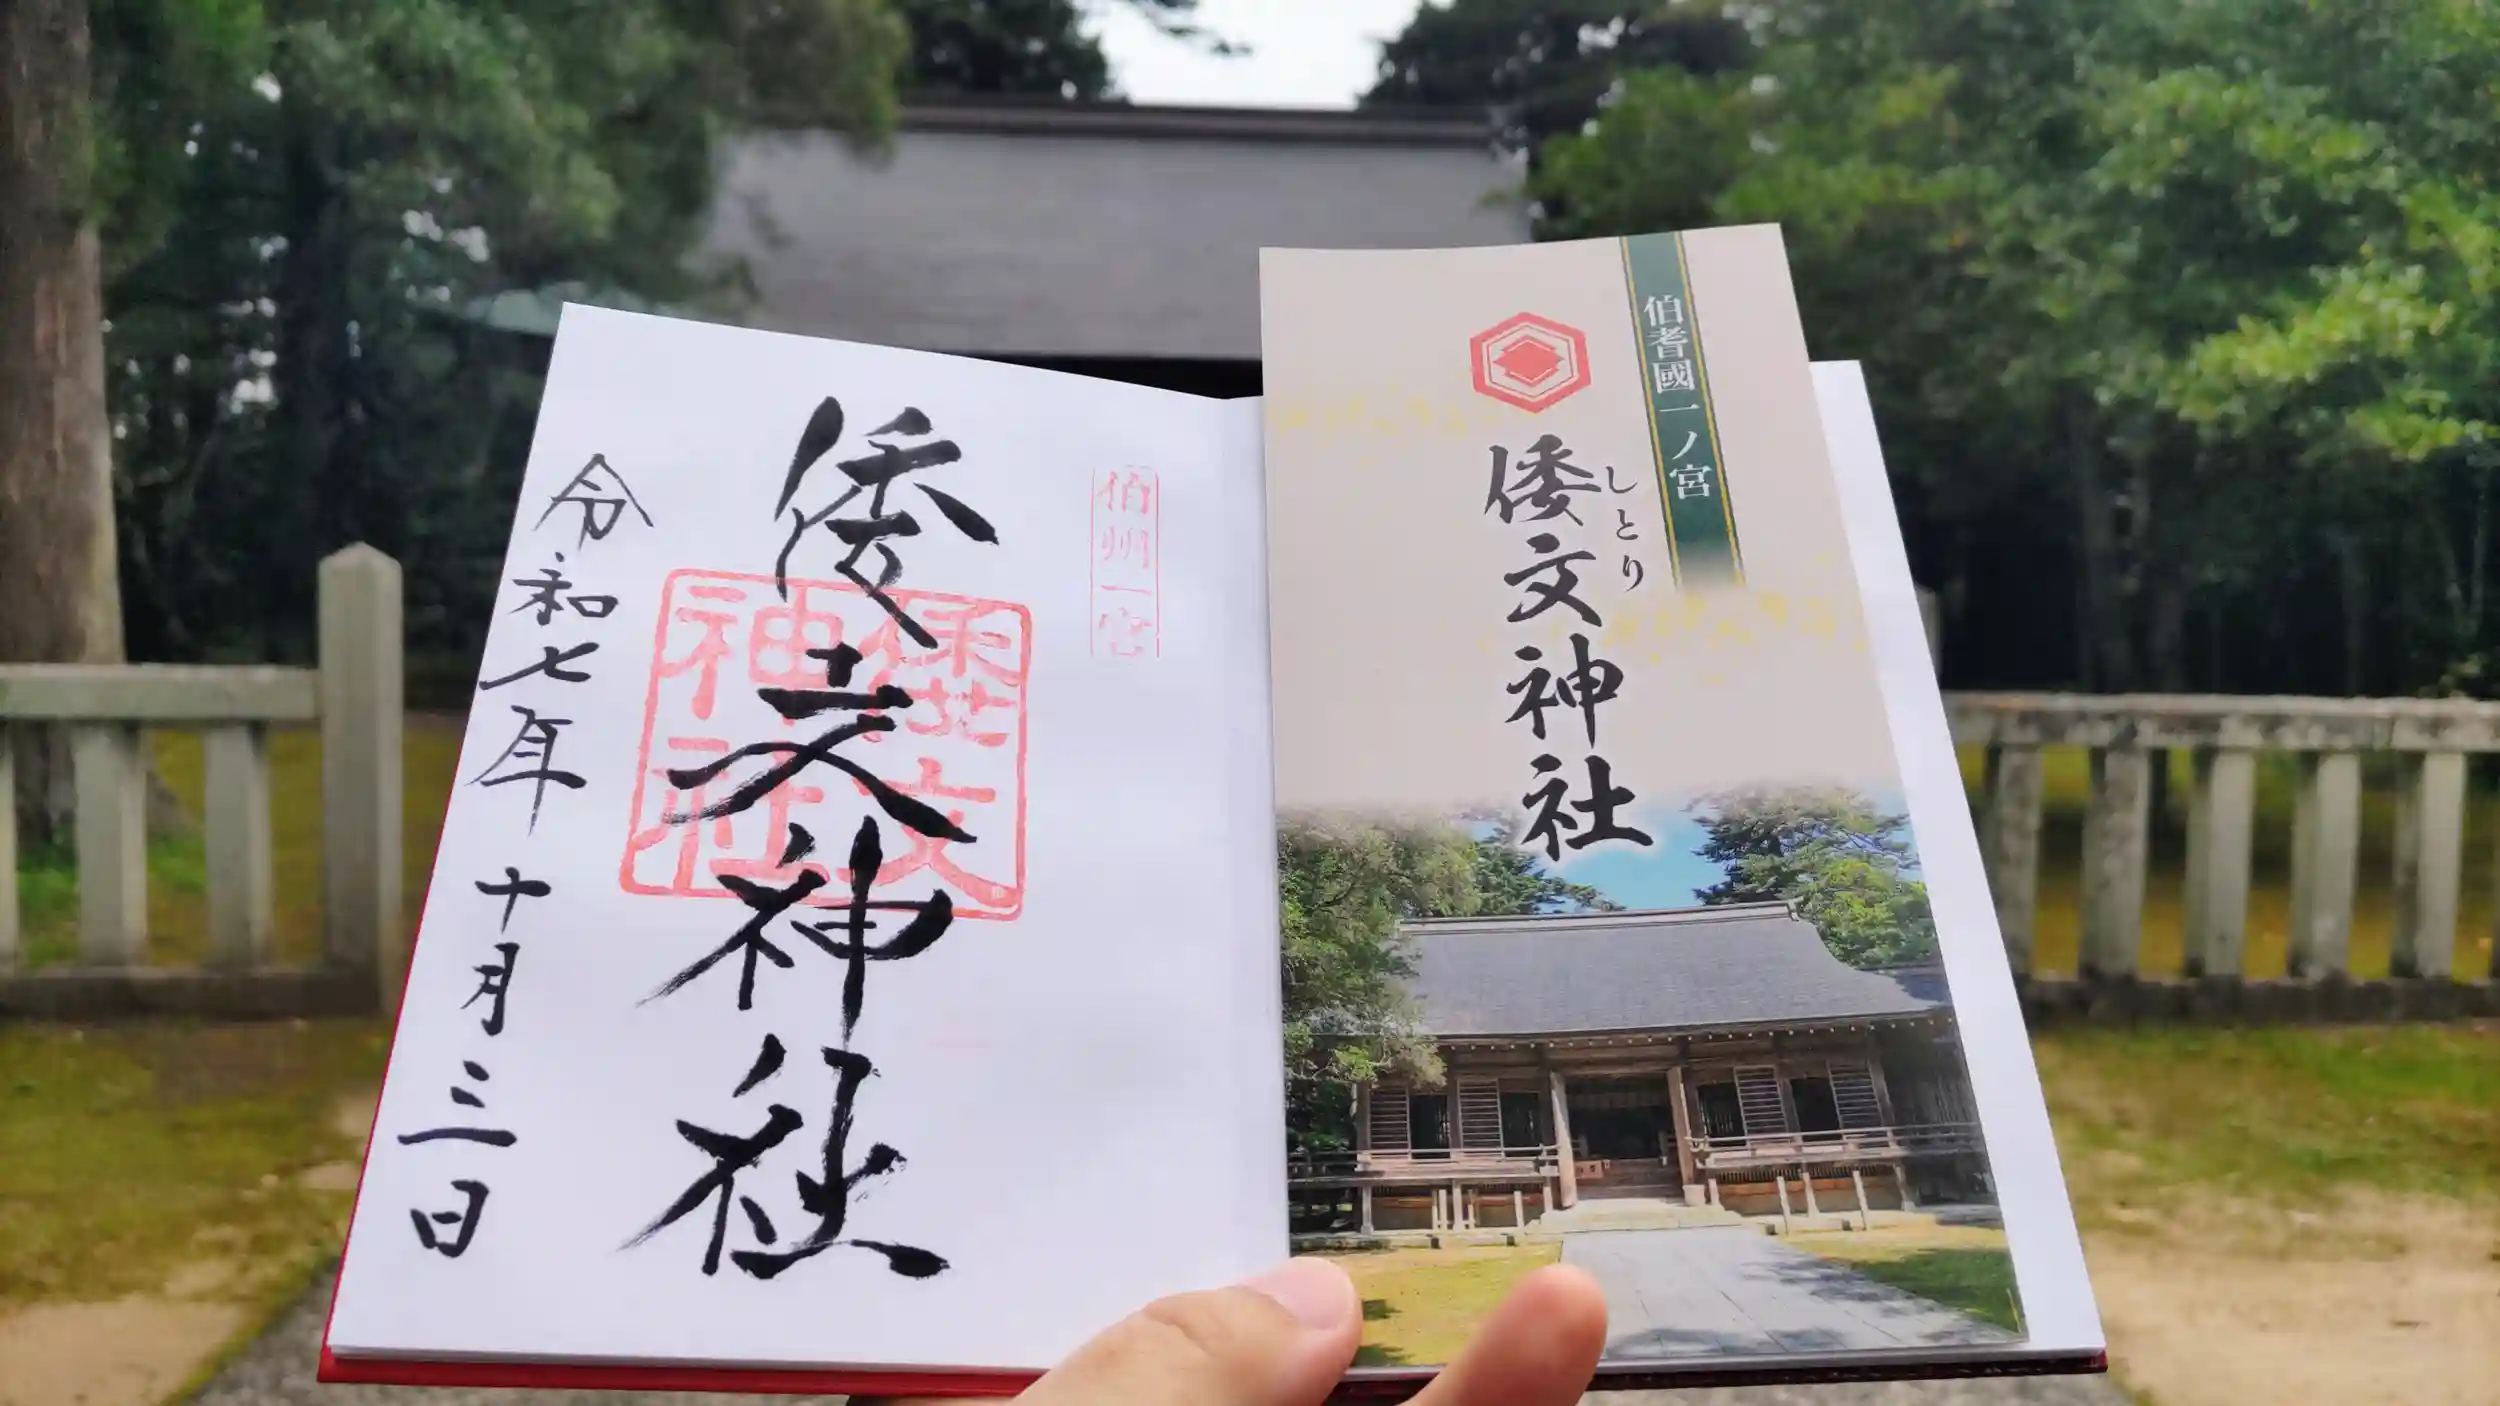 伯耆國一ノ宮
しとり
倭文神社
伯州一宮
倭文神社
倭文神社
令和七年十月三日